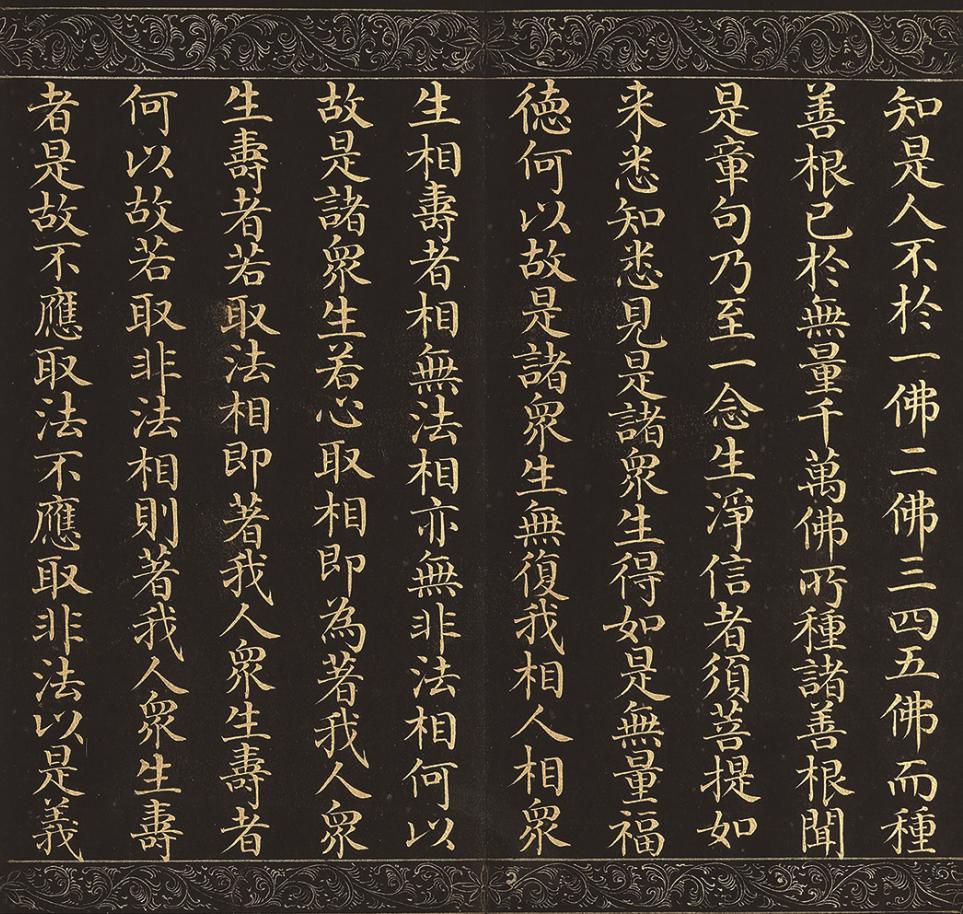 知是人不於一佛二佛三四五佛而種
善根已於無量千萬佛所種諸善根聞
是章句乃至一念生淨信者須菩提如
来悉知悉見是諸衆生得如是無量福
德何以故是諸衆生無復我相人相衆
生相壽者相無法相亦無非法相何以
故是諸衆生若心取相即為著我人衆
生壽者若取法相即著我人衆生壽者
何以故若取非法相則著我人衆生壽
者是故不應取法不應取非法以是義